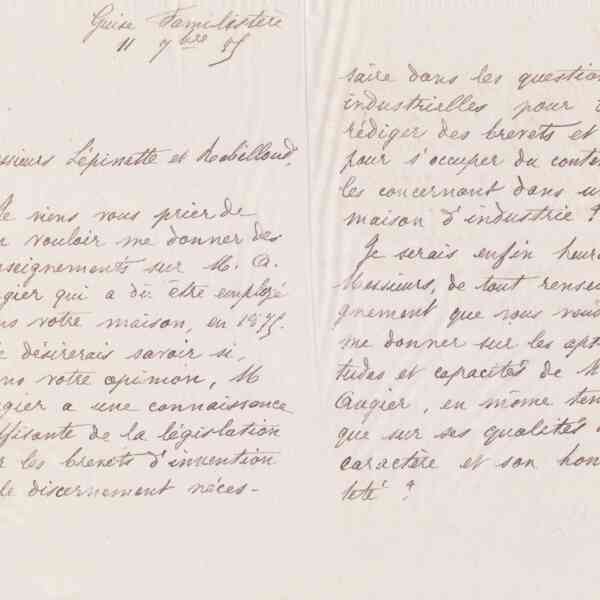 Guise Familistère
11 7bre 85
essieurs Lépinette et Rabilloud,
Je viens vous prier de
vouloir me donner des
nseignements sur M. A.
gier qui a dû être employé
ns votre maison, en 1875.
e désirerais savoir si,
ns votre opinion, M
ugier a une connaissance
ffisante de la législation
r les brevets d'invention
le discernement néces-
saire dans les question
industrielles pour
rédiger des brevets et
pour s'occuper du conten
les concernant dans u
maison d'industrie ?
Je serais enfin heur
Messieurs, de tout rensei
gnement que vous voud
me donner sur les apt
tudes et capacités de M
Augier, en même tem
que sur ses qualités
caractère et son hon
teté ?